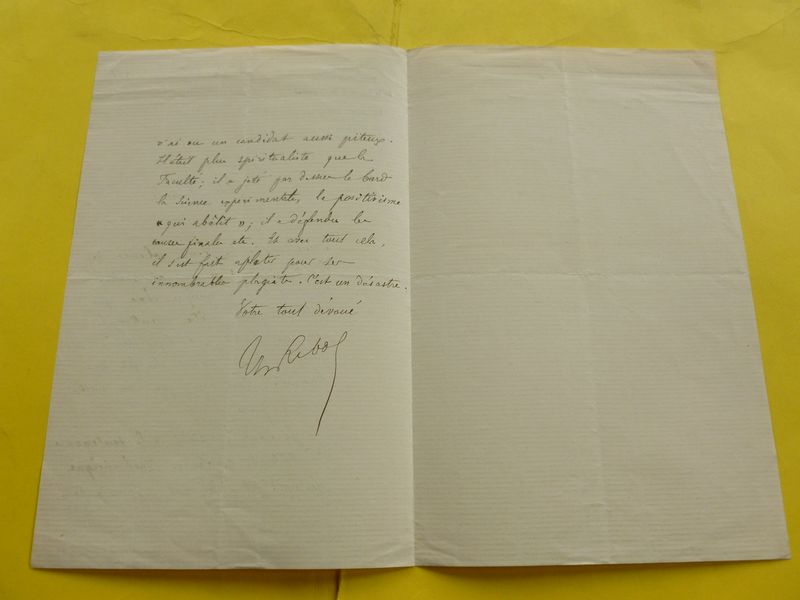 n'ai vu un candidat aussi piteux.
Il était plus spiritualiste que la
Faculté; il a jeté par dessus le bord
la science expérimentale, le positivisme
« qui abêtit »; il a défendu les
causes finales etc. Et avec tout cela,
il s'est fait aplatir pour ses
innombrables plagiats. C'est un désastre.
Votre tout dévoué
Th Ribot